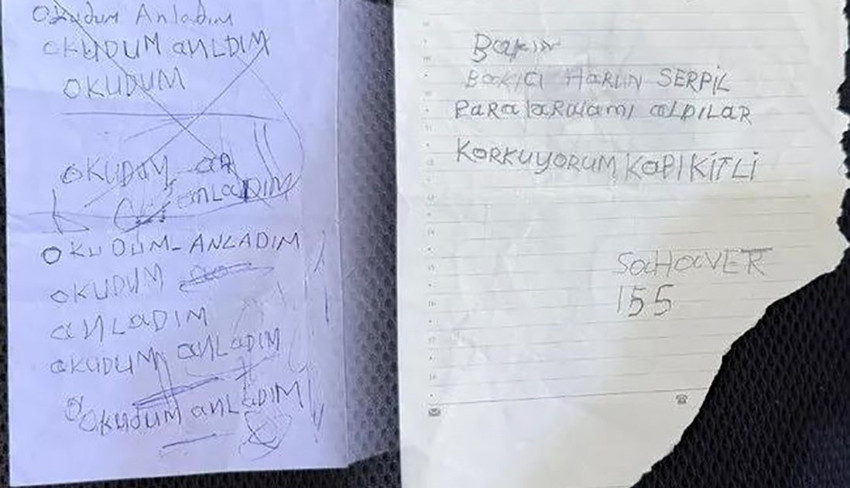 Okudum Anladım
OKUDUM anLDIM
OKUDUM
OKUDUM-an
anLaDIM
OKUDUM-ANLADIM
OKUDUM
anLaDIM
OKUDUM anLaDIM
OKUDUM anLaDIM
Bakın
BakıCI HaRUN SERPİL
PaRaLaRımI aLDILAR
KORKUYORUM KaPI KİTLİ
SaHaVER
155